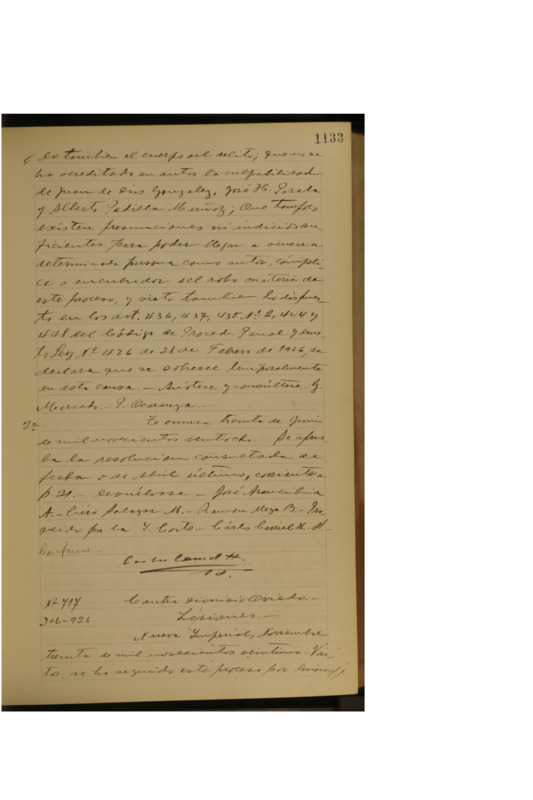 1133
do tambien el cuerpo del delito; que no se
ha acreditado en autos la culpabilidad
de Juan de Dios Gonzalez, José H. Parada
y Alberto Padilla Muñoz; Que tampoco
existen presunciones ni indicios su-
ficientes para poder llegar a acusar a
determinada persona como autor, cómpli-
ce o encubridor del robo materia de
este proceso, y visto tambien lo dispues-
to en los art. 436, 437, 438 Nº 2, 444 y
448 del Código de Proced. Penal y en
la Ley Nº 426 de 28 de Febrero de 1916, se
declara que se sobresee temporalmente
en esta causa. – Anótese y consúltese. G.
Mercado. – P. Ocaranza. –
2a Temuco, treinta de Junio
de mil novecientos veintiocho. – Se aprue-
ba la resolucion consultada de
fecha 5 de Abril último, corriente a
f. 21. – Devuélvase. – José Arancibia
A. – Ciro Salazar M. – Ramon Meza B. – Pro-
veido por la I. Corte. – Cárlos Camid H. S. –
Conforme. –
Carlos Camid H.
Nº 717 Contra Dionisio Oviedo. –
306-926 Lesiones. –
Nueva Imperial, Noviembre
treinta de mil novecientos veintiseis. Vis-
tos: se ha seguido este proceso por lesiones